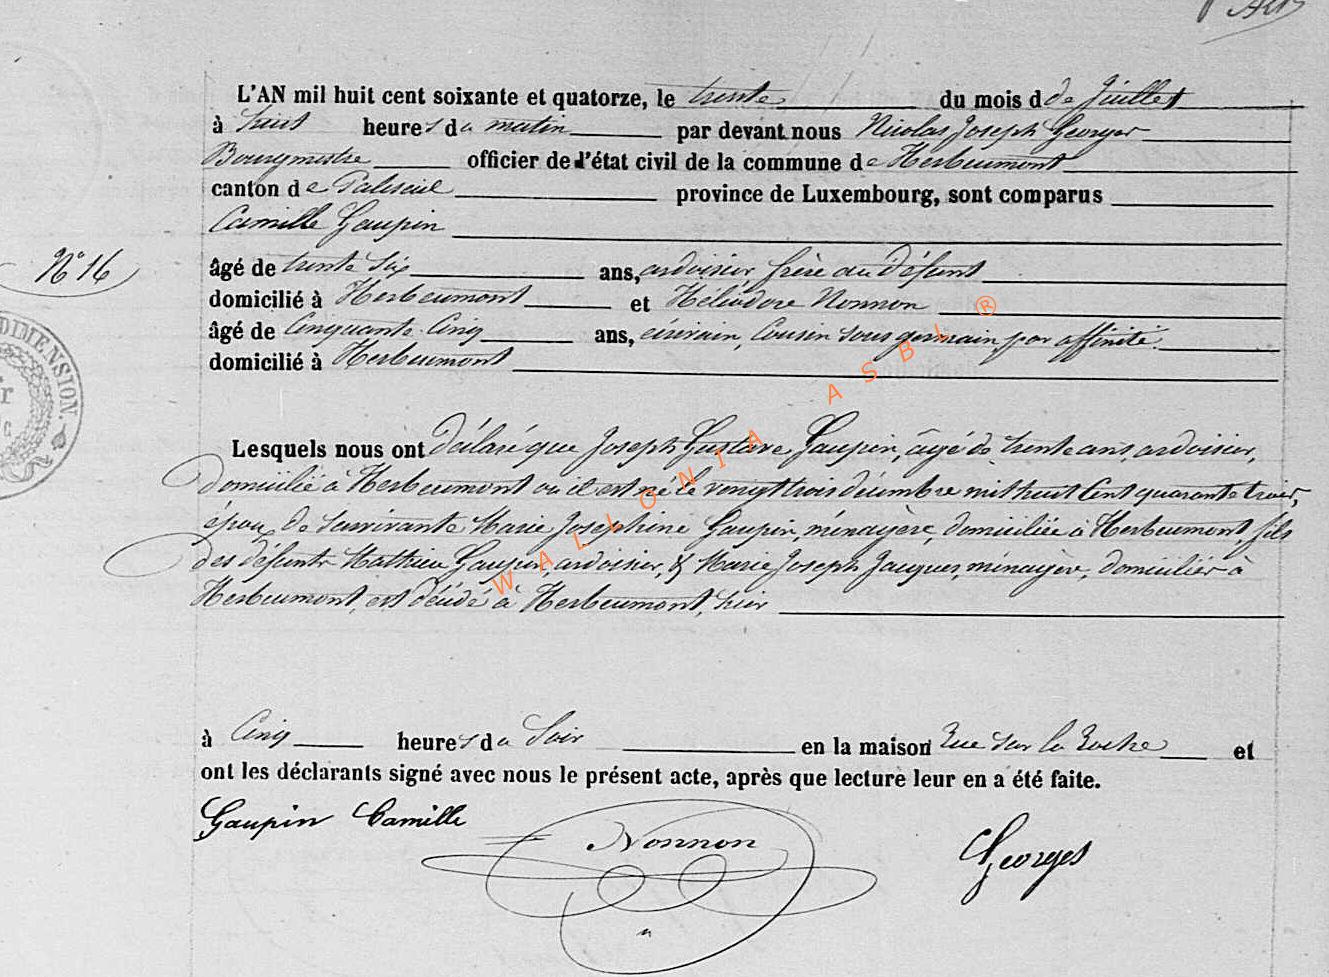 Acte
L'AN mil huit cent soixante et quatorze, le trente du mois d de Juillet
à huit heures du matin par devant nous Nicolas Joseph Georges
Bourgmestre officier de l'état civil de la commune de Herbeumont
canton de Paliseul province de Luxembourg, sont comparus
Camille Gaupin
N° 16
âgé de trente six ans, ardoisier frère au défunt
domicilié à Herbeumont et Héliodore Nonnon
âgé de Cinquante Cinq ans, écrivain, Cousin sous germain par affinité
domicilié à Herbeumont
DIMENSION.
Lesquels nous ont déclaré que Joseph Gustave Gaupin, âgé de trente ans ardoisier,
domicilié à Herbeumont où il est né le vengt trois décembre mil huit Cent quarante trois,
époux de survivante Marie Josephine Gaupin, ménagère, domiciliée à Herbeumont, fils
des défunts Mathieu Gaupin, ardoisier, & Marie Joseph Jacques, ménagère, domiciliés à
Herbeumont, est décédé à Herbeumont, hier
WALLONIA ASBL ®
à Cinq heures du Soir en la maison Rue sur la Roche et
ont les déclarants signé avec nous le présent acte, après que lecture leur en a été faite.
Gaupin Camille
Nonnon
Georges